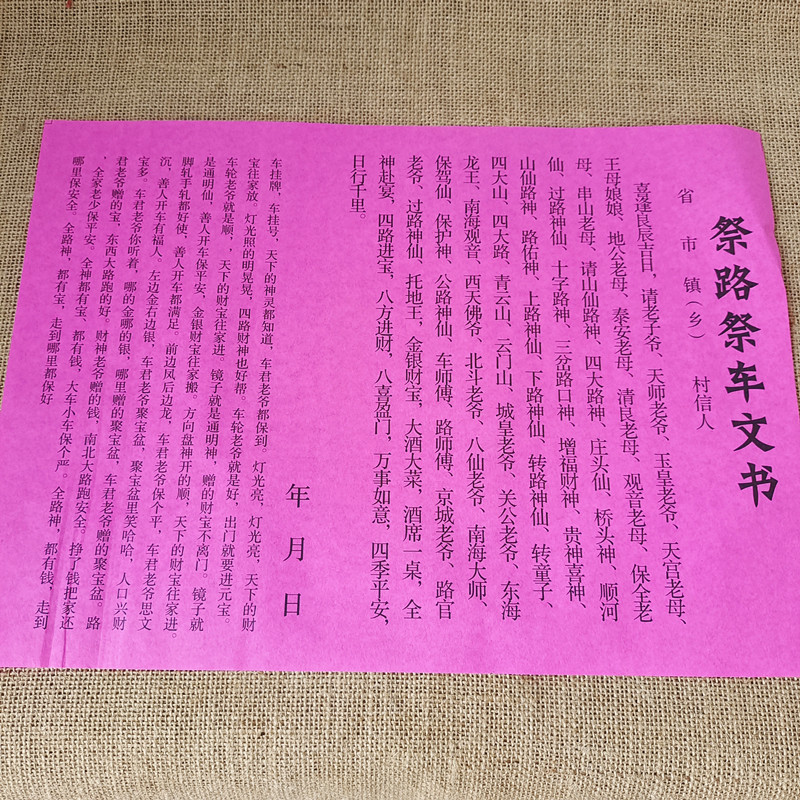 祭路祭车文书
省 市 镇(乡) 村信人
喜逢良辰吉日，请老子爷、天师老爷、玉皇老爷、天宫老母、
王母娘娘、地公老母、泰安老母、清良老母、观音老母、保全老
母、串山老母、请山仙路神、四大路神、庄头仙、桥头神、顺河
仙、过路神仙、十字路神、三岔路口神、增福财神、贵神喜神、
山仙路神、路佑神、上路神仙、下路神仙、转路神仙、转童子、
四大山、四大路、青云山、云门山、城皇老爷、关公老爷、东海
龙王、南海观音、西天佛爷、北斗老爷、八仙老爷、南海大师、
保驾仙、保护神、公路神仙、车师傅、路师傅、京城老爷、路官
老爷、过路神仙、托地王，金银财宝，大酒大菜，酒席一桌，全
神赴宴，四路进宝，八方进财，八喜盈门，万事如意，四季平安，
日行千里。
年 月 日
车挂牌，车挂号，天下的神灵都知道，车君老爷都保到。灯光亮，灯光亮，天下的财
宝往家放。灯光照的明晃晃，四路财神也好帮。车轮老爷就是好，出门就要进元宝。
车轮老爷就是顺，，天下的财宝往家进。镜子就是通明神，赠的财宝不离门。镜子就
是通明仙，善人开车保平安，金银财宝往家搬。方向盘神开的顺，天下的财宝往家进。
脚轧手轧都好使，善人开车都满足。前边凤后边龙，车君老爷保个平，车君老爷思文
沉，善人开车有福人。左边金右边银，车君老爷聚宝盆，聚宝盆里笑哈哈，人口兴财
宝多。车君老爷你听着，哪的金哪的银，哪里赠的聚宝盆，车君老爷赠的聚宝盆。路
君老爷赠的宝，东西大路跑的好。财神老爷赠的钱，南北大路跑安全。挣了钱把家还
，全家老少保平安。全神都有宝，都有钱，大车小车保个严。全路神，都有钱，走到
哪里保安全。全路神，都有宝，走到哪里都保好